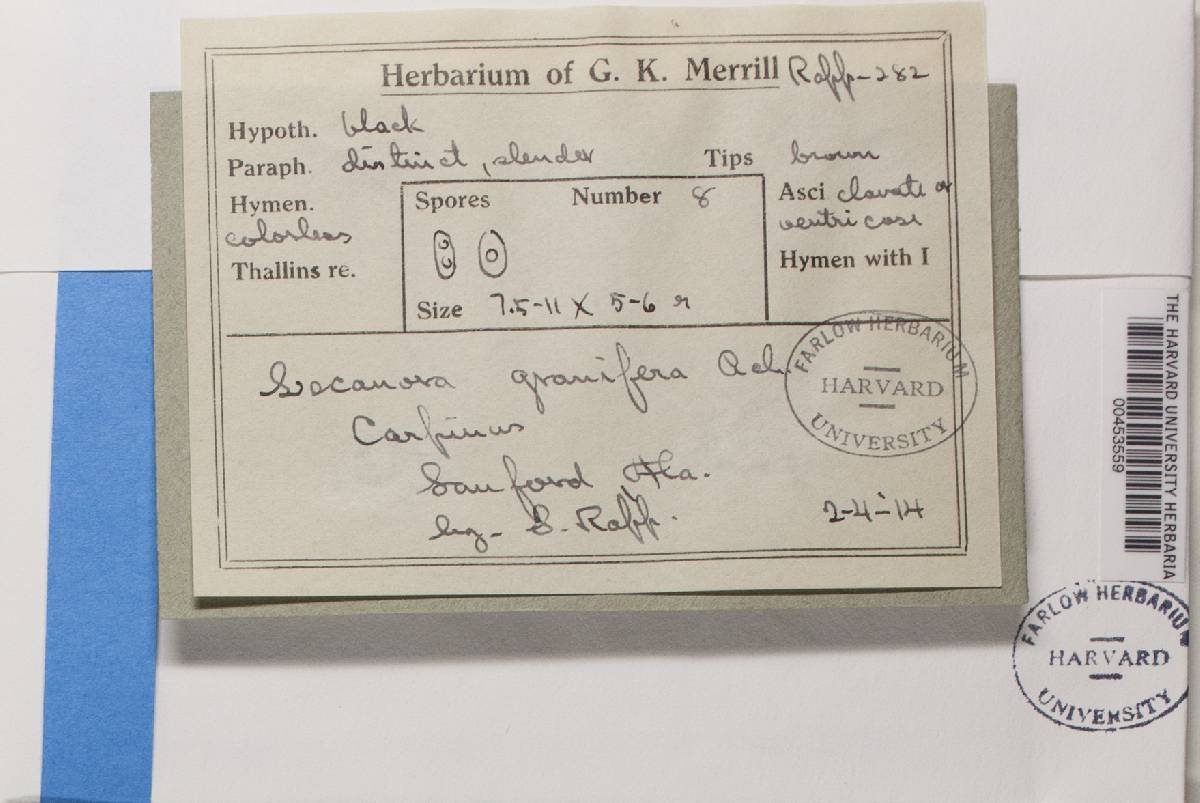 Herbarium of G. K. Merrill Rapp-282
Hypoth. black
Paraph. distinct, slender Tips brown
Hymen. colorless
Thallins re.
Spores Number 8
Size 7.5-11 X 5-6
Asci clavate or
ventricose
Hymen with I
Lecanora granifera Ach.
Carpinus
Sanford Fla.
leg. S. Rapp. 2-4-14
FARLOW HERBARIUM
HARVARD
UNIVERSITY
THE HARVARD UNIVERSITY HERBARIA
00453559
FARLOW HERBARIUM
HARVARD
UNIVERSITY